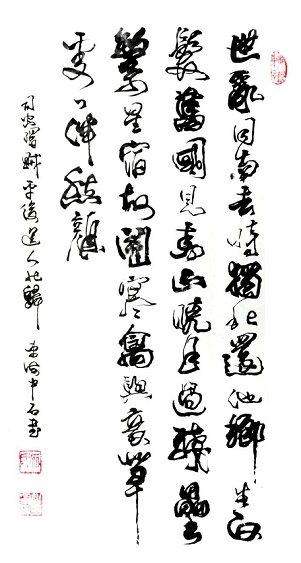 世亂同南去時獨北還他鄉生白
髮舊國見青山曉月過殘壘
繁星宿故關寒禽與衰草
處々伴愁顏
司空曙賊平後送人北歸 中石書